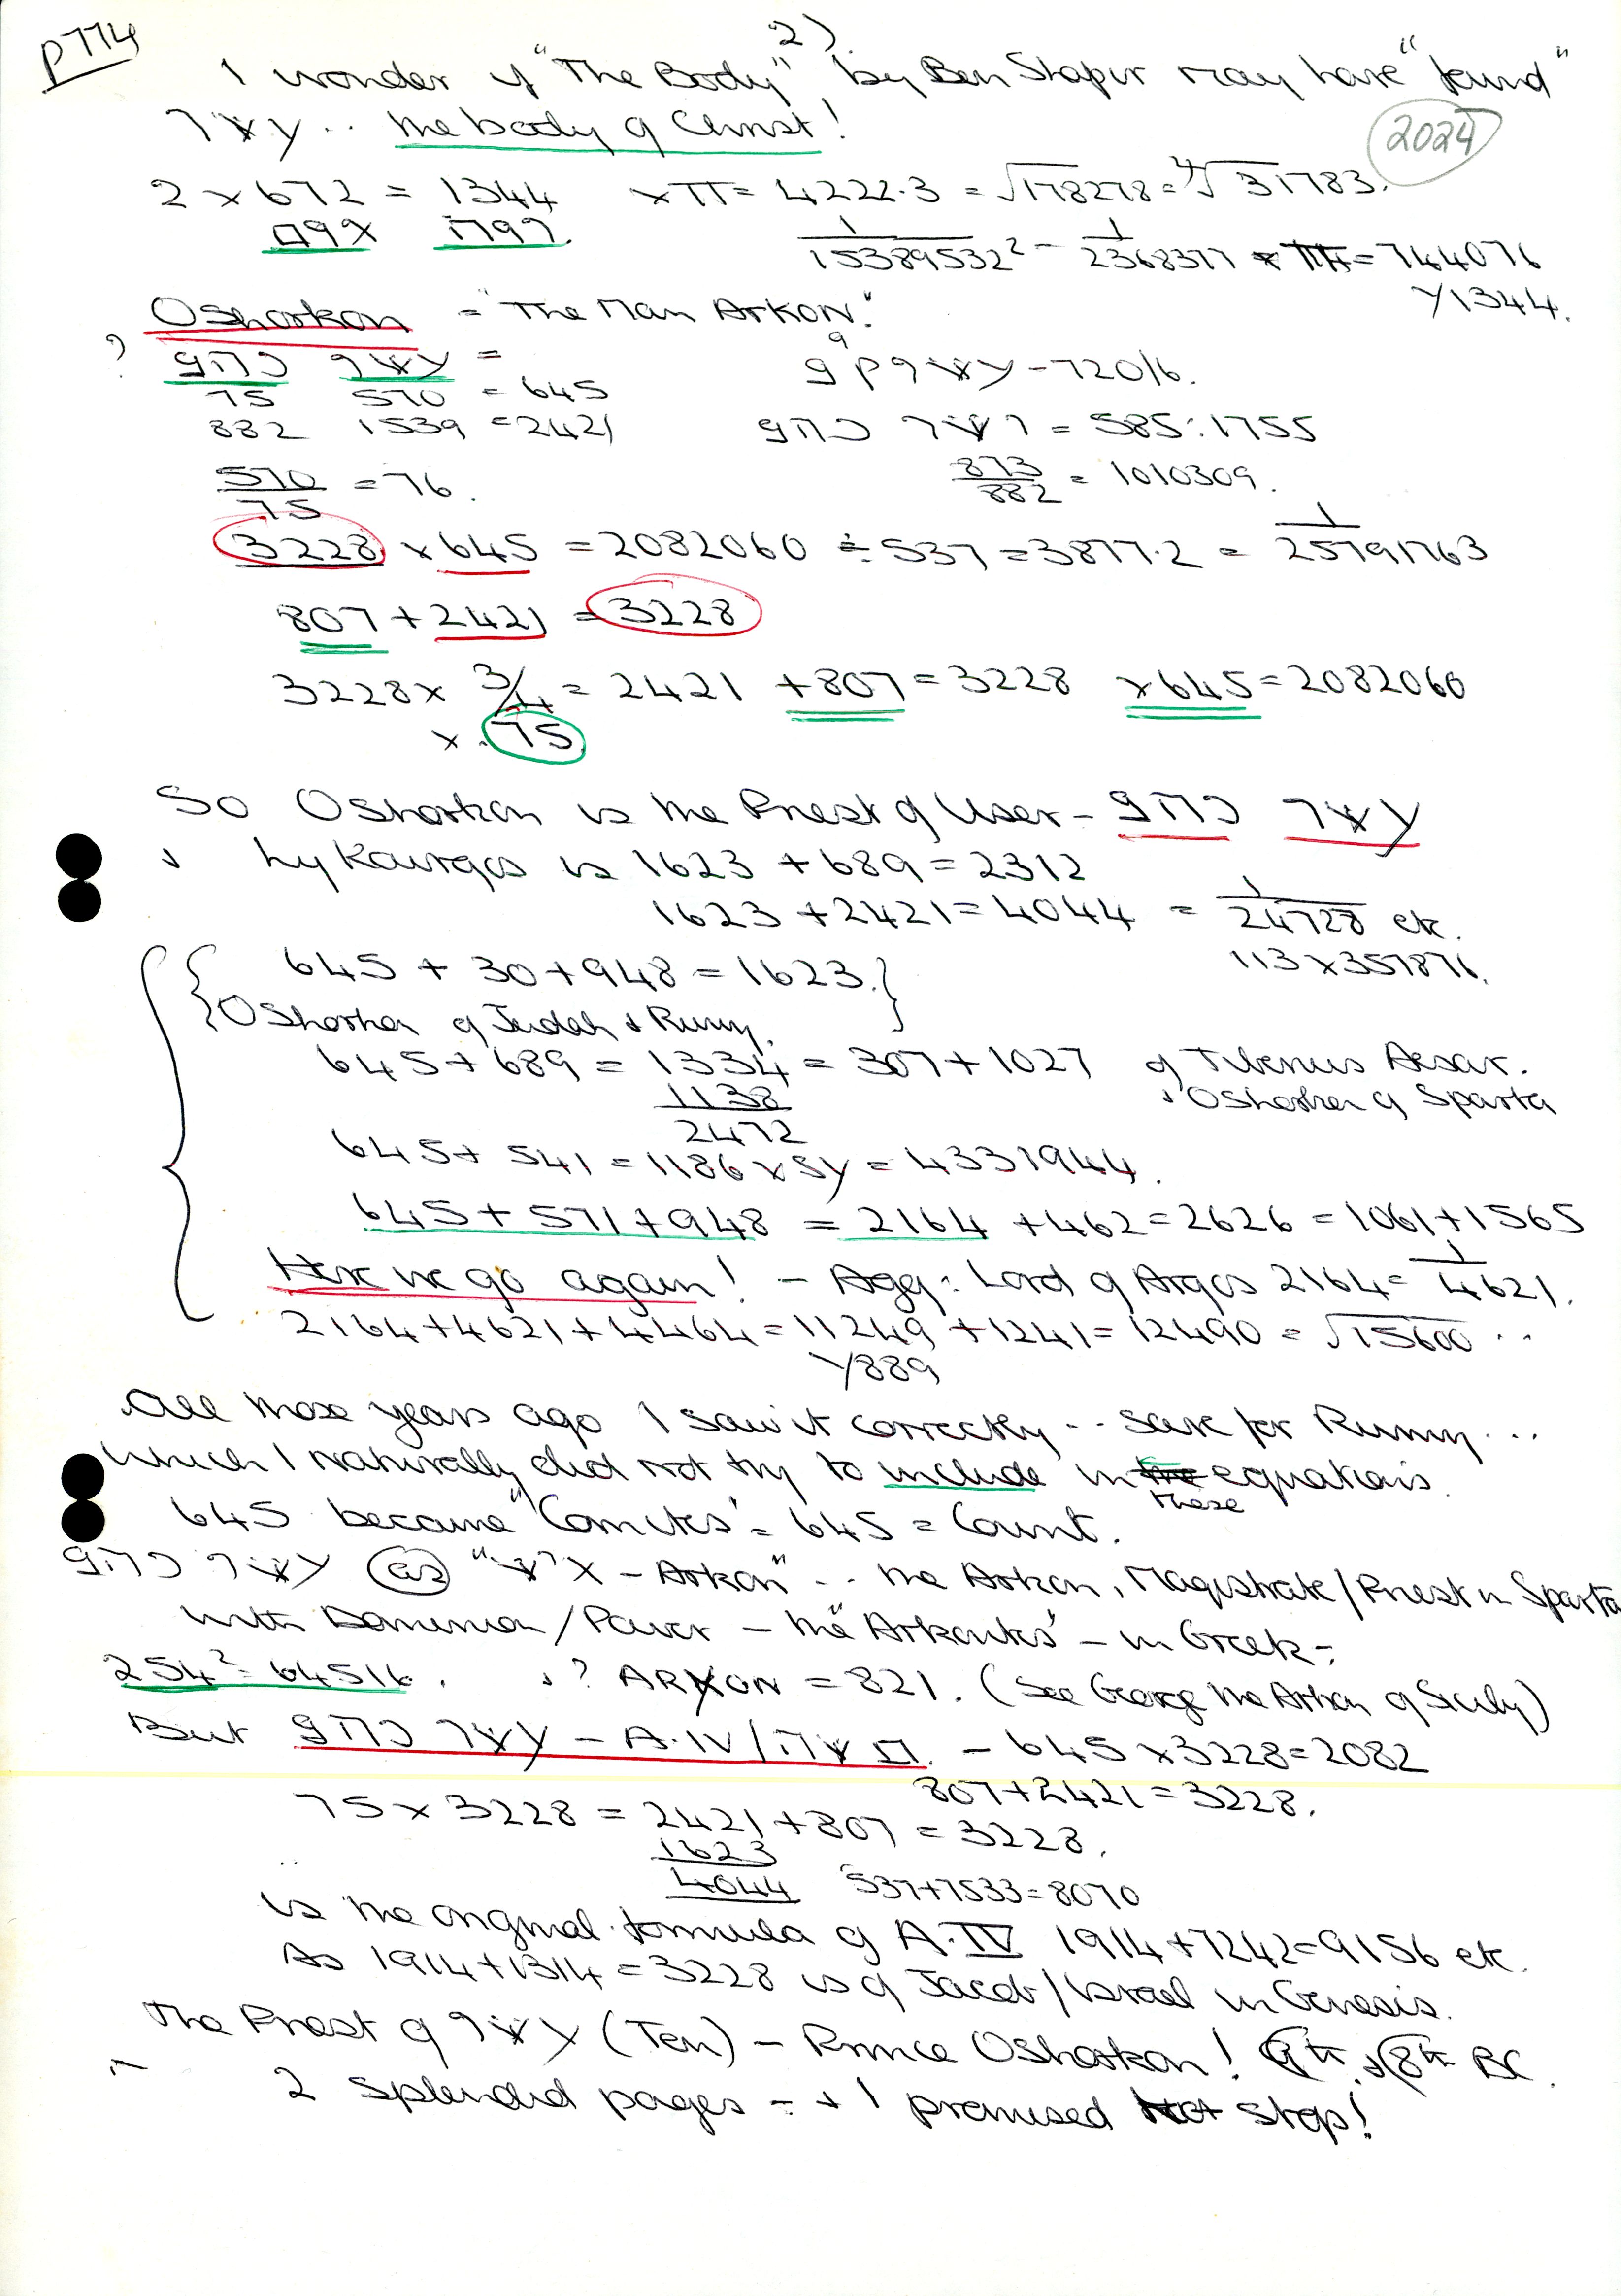 p774
2).
I wonder if "The Body" by Ben Shapir may have "found"
the body of Christ!
2024
2 x 672 = 1344 x π = 4222.3 = √178278 = ∜31783.
1/15389532² = 1/2368377 = 744076
Y1344.
Oshorkon = "The Man ArKON."
?
75 570 = 645
720/6.
882 1539 = 2421
= 585:1755
570/75 = 76.
873/882 = 1010309.
3228 x 645 = 2082060 ÷ 537 = 3877.2 = 1/25791763
807 + 2421 = 3228
3228 x 3/4 = 2421 + 807 = 3228 x 645 = 2082060
x .75
So Oshorkon is the Priest of User -
Lykourgos is 1623 + 689 = 2312
1623 + 2421 = 4044 = 1/24728 etc.
645 + 30 + 948 = 1623.
113 x 357876.
Oshorkon of Judah &
645 + 689 = 1334 = 307 + 1027 of Tiberius Aesar.
1138 & Oshorkon of Sparta
2472
645 + 541 = 1186 x Sy = 4331944.
645 + 571 + 948 = 2164 + 462 = 2626 = 1061 + 1565
Here we go again! - Agg: Lord of Argos 2164 = 1/4621.
2164 + 4621 + 4464 = 11249 + 1241 = 12490 = √15600 ..
Y889
All those years ago I saw it correctly .. save for
which I naturally did not try to include in these equations.
645 became "Comites" = 645 = Count.
as - Arkon" .. the Arkon, Magistrate/Priest in Sparta
with Dominion/Power - the "Arkontes" - in Greek -
254² = 64516. & ? ARXON = 821. (See George the Arkon of Sicily)
But - A.IV/ - 645 x 3228 = 2082
807 + 2421 = 3228.
75 x 3228 = 2421 + 807 = 3228.
1623
4044 537 + 7533 = 8070
is the original formula of A.IV 1914 + 7242 = 9156 etc.
As 1914 + 1314 = 3228 is of Jacob/Israel in Genesis.
The Priest of (Ten) - Prince Oshorkon! 9th & 8th BC.
2 splendid pages - & I promised stop!